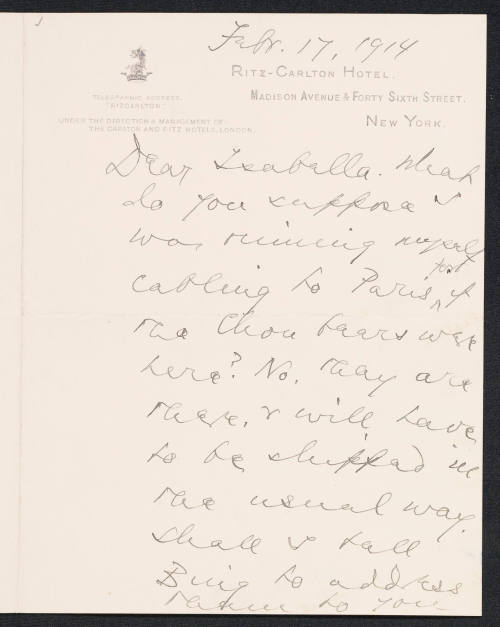 Febr. 17, 1914
RITZ-CARLTON HOTEL.
MADISON AVENUE & FORTY SIXTH STREET.
NEW YORK.
TELEGRAPHIC ADDRESS,
"RIZCARLTON"
UNDER THE DIRECTION & MANAGEMENT OF:
THE CARLTON AND RITZ HOTELS, LONDON.
Dear Isabella. What
do you suppose I
was ruining myself
for
cabling to Paris, if
the Chou bears were
here? No. They are
there, & will have
to be shipped in
the usual way.
Shall I tell
Bing to address
them to you